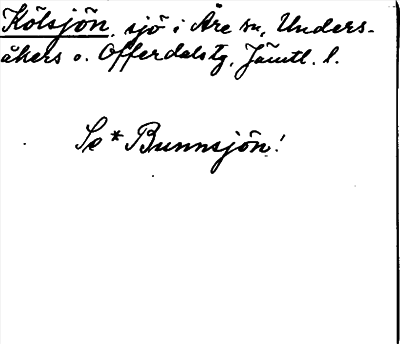 Kölsjön, sjö i Åre sn, Unders-
åkers o. Offerdals tg, Jämtl. l.
Se * Bunnsjön!